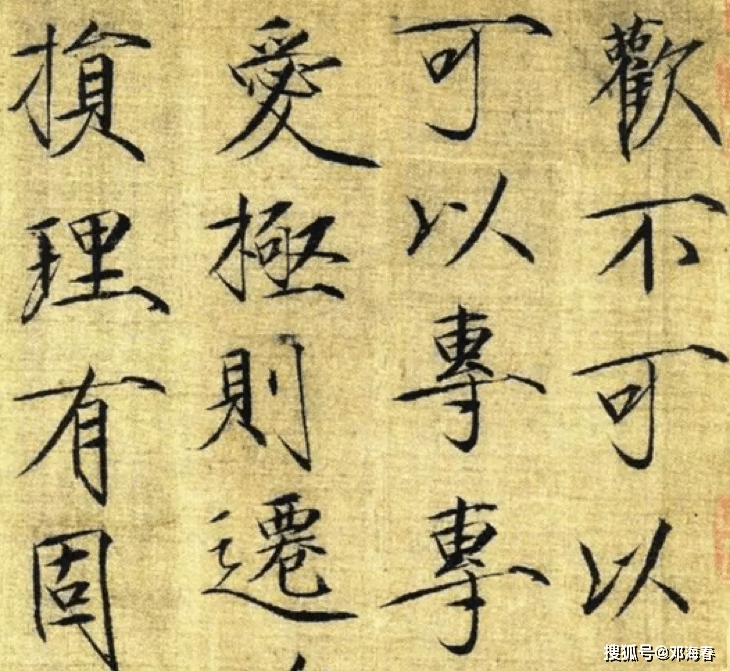 歡不可以
可以專專
愛極則遷
損理有固
搜狐号@邓海春